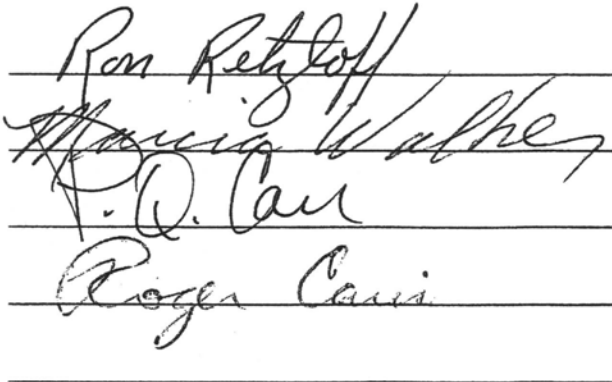 Ron Retzloff
Marcia Walker
P. Q. Carr
Roger Caris